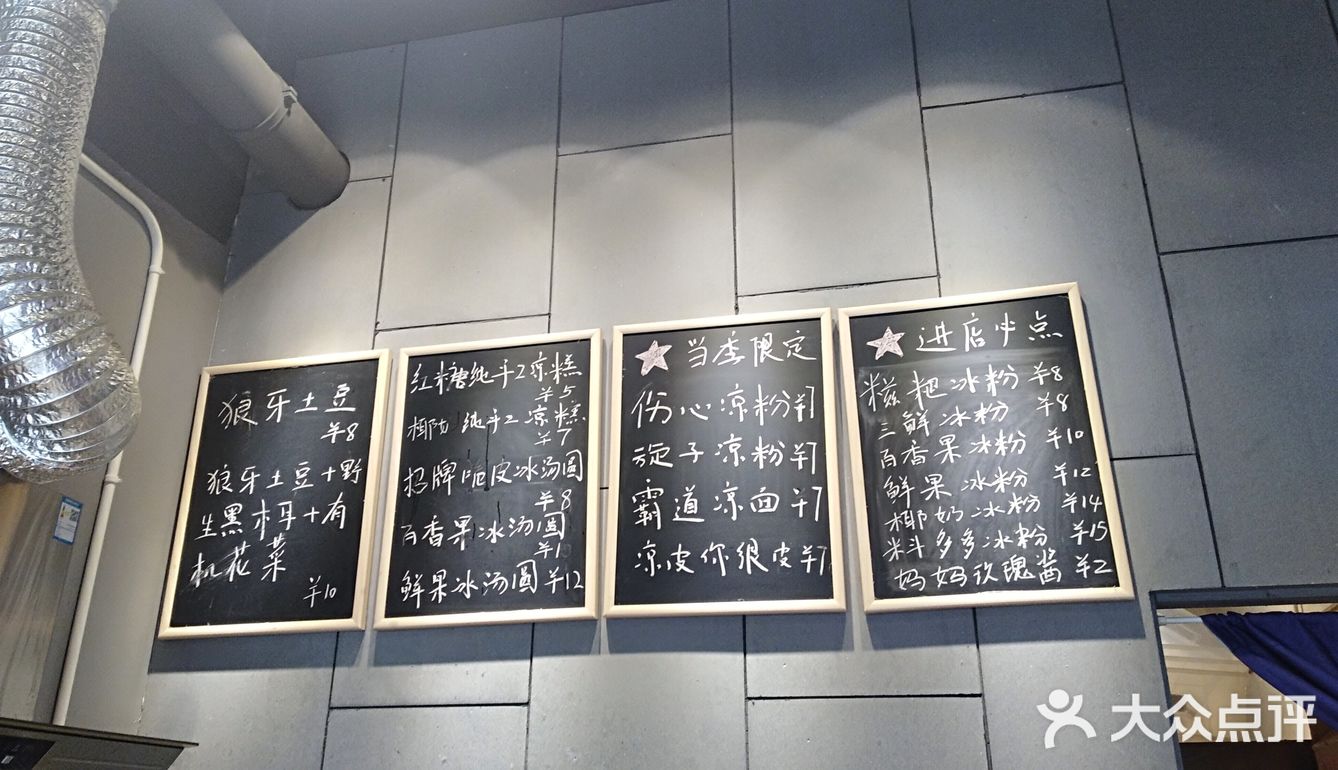 狼牙土豆
¥8
狼牙土豆+野
生黑木耳+有
机花菜
¥10
红糖纯手工凉糕
¥5
椰奶 纯手工凉糕
¥7
招牌脆皮冰汤圆
¥8
百香果冰汤圆
鲜果冰汤圆¥12
当季限定
伤心凉粉¥7
旋子凉粉¥7
霸道凉面¥7
凉皮你很皮¥7
进店必点
糍粑冰粉¥8
三鲜冰粉 ¥8
百香果冰粉 ¥10
鲜果冰粉 ¥12
椰奶冰粉 ¥14
料多多冰粉 ¥15
妈妈玫瑰酱¥2
大众点评